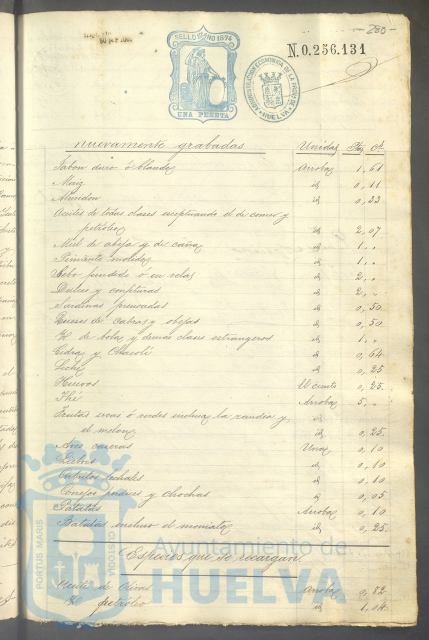 -280-
SELLO 10º AÑO 1874
UNA PESETA
N. 0.256.131
ADMINISTRACION ECONOMICA DE LA PROVINCIA DE HUELVA
nuevamente grabadas Unidas Ptas Cts
Jabon duro ó blando Arroba 1, 61
Maiz id 0, 11
Almidon id 0, 23
Aceites de todas clases esceptuando el de comer y
petroleo id 2, 07
Miel de abeja y de caña id 1, ..
Pimiento molido id 1, ..
Sebo fundido ó en velas id 2, ..
Dulces y confituras id 2, ..
Sardinas prensadas id 0, 50
Quesos de cabras y obejas id 0, 50
Id de bola y demas clases estrangeros id 1, ..
Cidra y Chacoli id 0, 64
Leche id 0, 25
Huevos El ciento 0, 25
Thé Arroba 5, ..
Frutas secas ó verdes inclusa la zandia y
el melon id 0, 25
Aves caseras Una 0, 10
id 0, 10
Cabritos lechales id 0, 10
Conejos perdices y chochas id 0, 05
Patatas Arroba 0, 10
Batatas inclusa el moniato id 0, 25
Especies que se recargan
Aceite de Olivas Arroba 0, 82
Id petroleo id 1, 04
PORTUS MARIS ET TERRÆ CUSTODIA
Ayuntamiento de
HUELVA